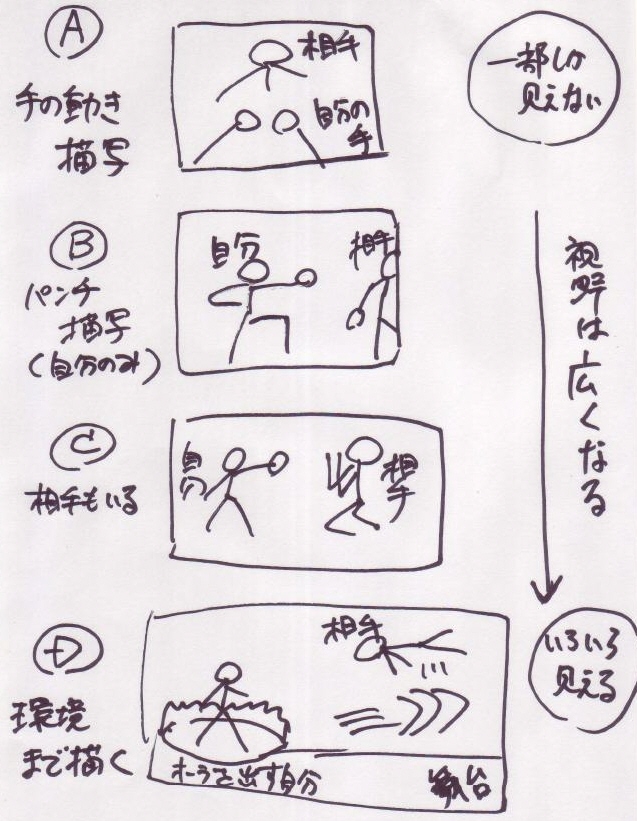 A
手の動き
描写
相手
自分の
手
一部しか
見えない
B
パンチ
描写
(自分のみ)
自分
相手
視野は広くなる
C
相手もいる
自分
相手
D
環境
まで描く
相手
オーラを出す自分
舞台
いろいろ
見える